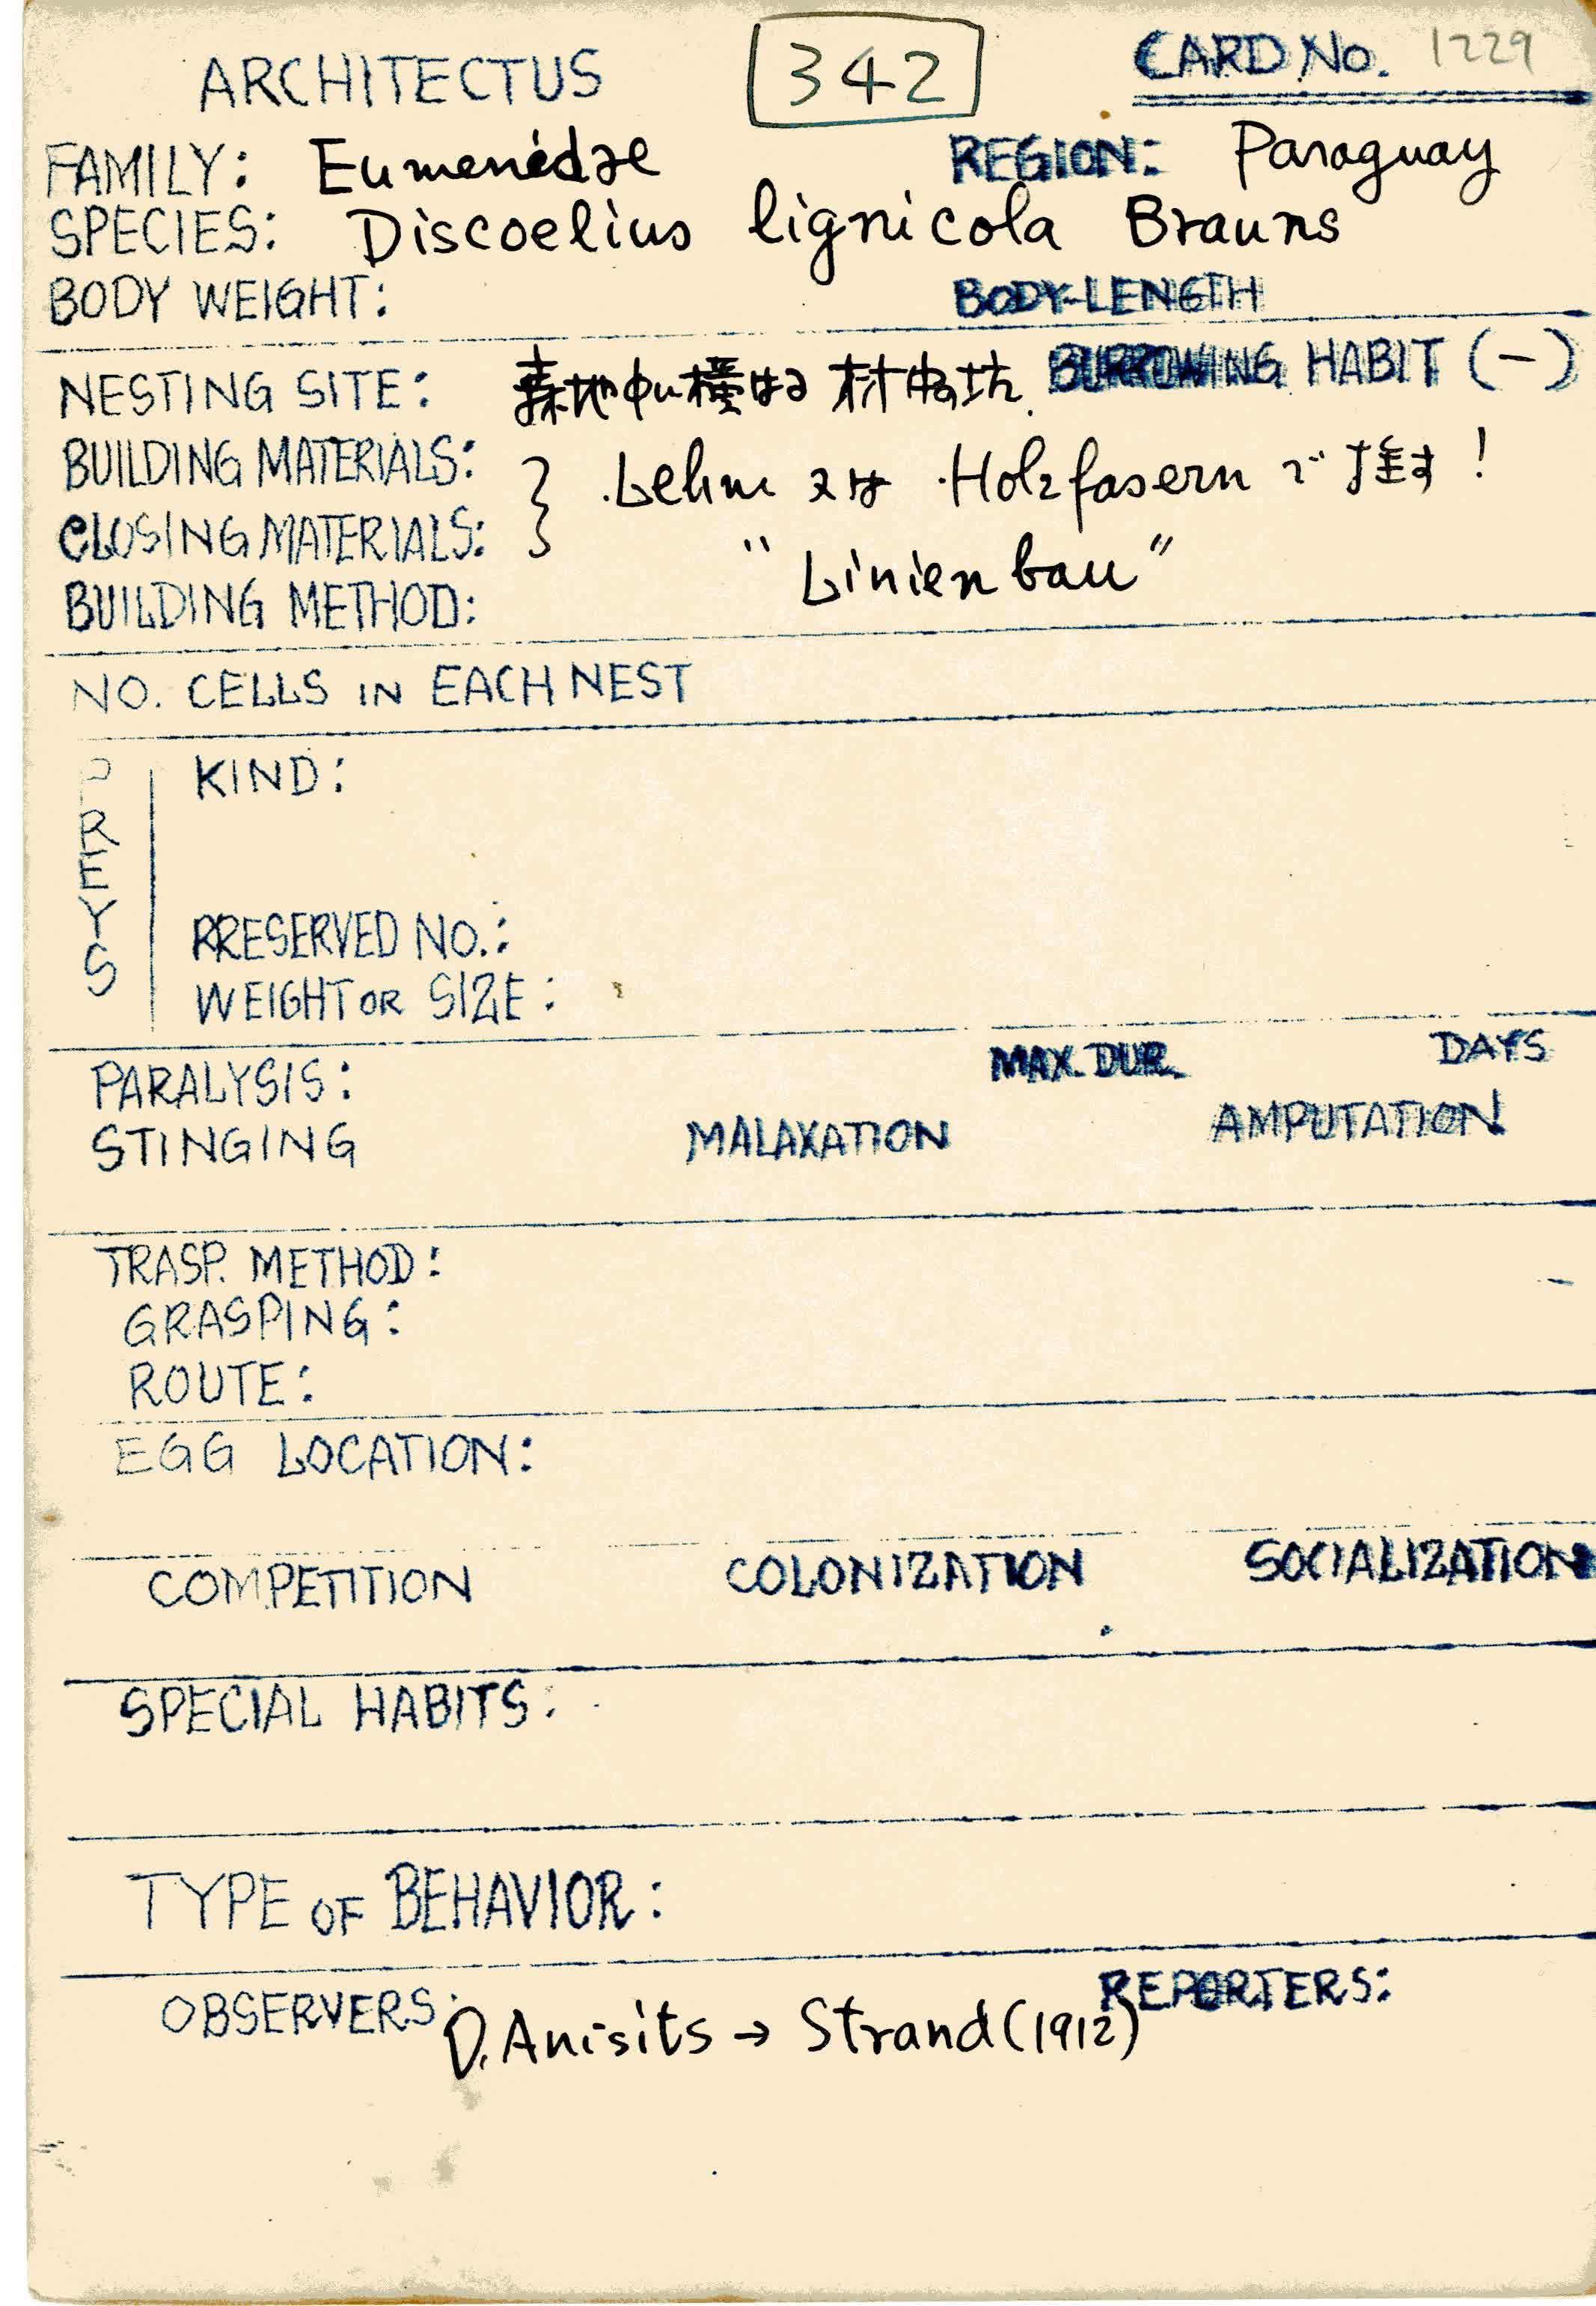 ARCHITECTUS 342 CARD No. 1229
FAMILY: Eumenidae REGION: Paraguay
SPECIES: Discoelius lignicola Brauns
BODY WEIGHT: BODY-LENGTH
NESTING SITE: 材中の坑. BURROWING HABIT (-)
BUILDING MATERIALS: } Lehm 又は Holzfasern で
CLOSING MATERIALS:
BUILDING METHOD: "Linienbau"
NO. CELLS IN EACH NEST
PREYS
KIND:
PRESERVED NO.:
WEIGHT OR SIZE:
PARALYSIS: MAX. DUR. DAYS
STINGING MALAXATION AMPUTATION
TRASP. METHOD:
GRASPING:
ROUTE:
EGG LOCATION:
COMPETITION COLONIZATION SOCIALIZATION
SPECIAL HABITS:
TYPE OF BEHAVIOR:
OBSERVERS: REPORTERS:
D. Anisits → Strand (1912)